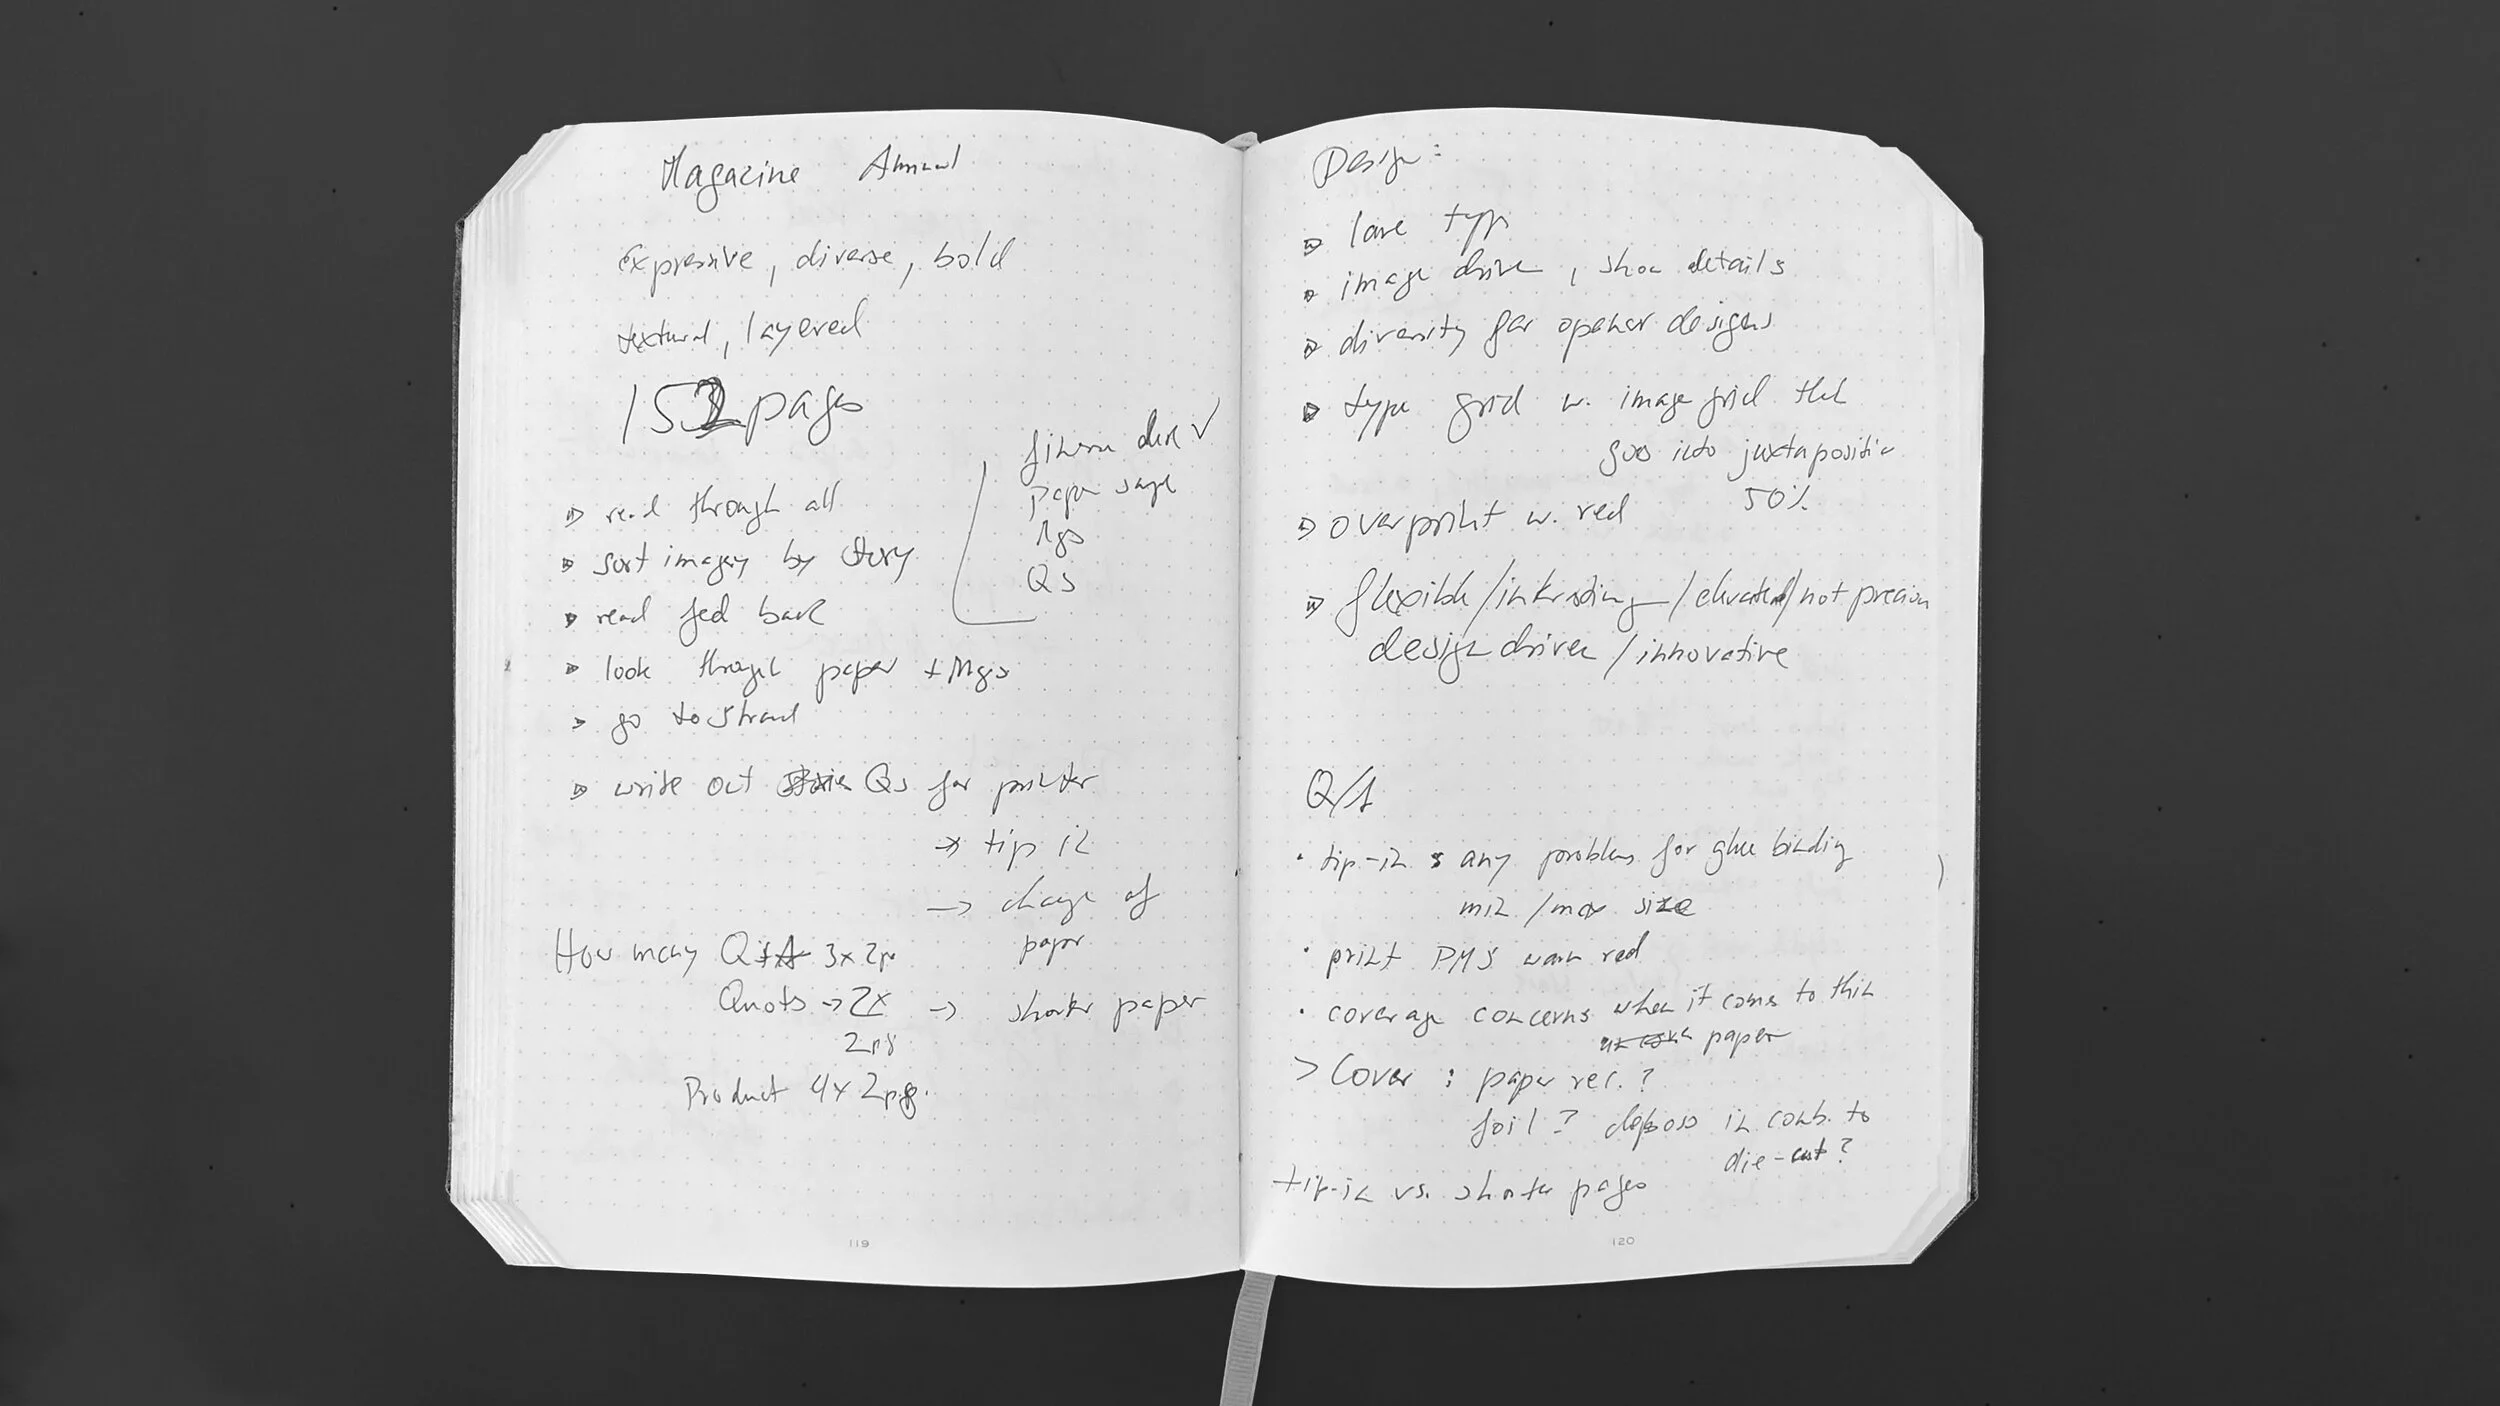 Magazine Annual
expressive, diverse, bold
textural, layered
152 pages
read through all
sort imagery by story
read feed back
look through paper + Mgs
go to Strand
write out Qs for printer
→ tip in
→ change of
paper
→ shorter paper
paper
Mgs
Qs
How many Q+A 3x 2p
Quots → 2x
2ps
Product 4x 2pg.
119
Design:
type
image driven, show details
diversity for opener designs
type grid w. image grid that
goes into juxtaposition
50%
overprint w. red
flexible / interesting / elevated / not precious
design driven / innovative
Q/A
• tip-in : any problems for glue binding
min / max size
• print PMS warm red
• coverage concerns when it comes to thin
paper
> Cover : paper rec. ?
foil ? deboss in comb. to
die-cut ?
tip-in vs. shorter pages
120